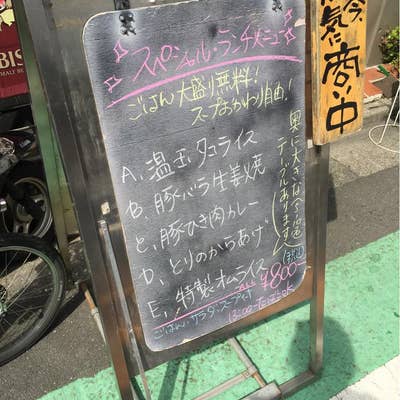 スペシャル・ランチメニュー
ごはん大盛り無料!
スープおかわり自由!
A、温玉タコライス
B、豚バラ生姜焼
C、豚ひき肉カレー
D、とりのからあげ
E、特製オムライス
奥に大きな
テーブルあります
¥800
(税込)
ごはん・サラダ・スープ付
今、
元気に
商い中
BIS